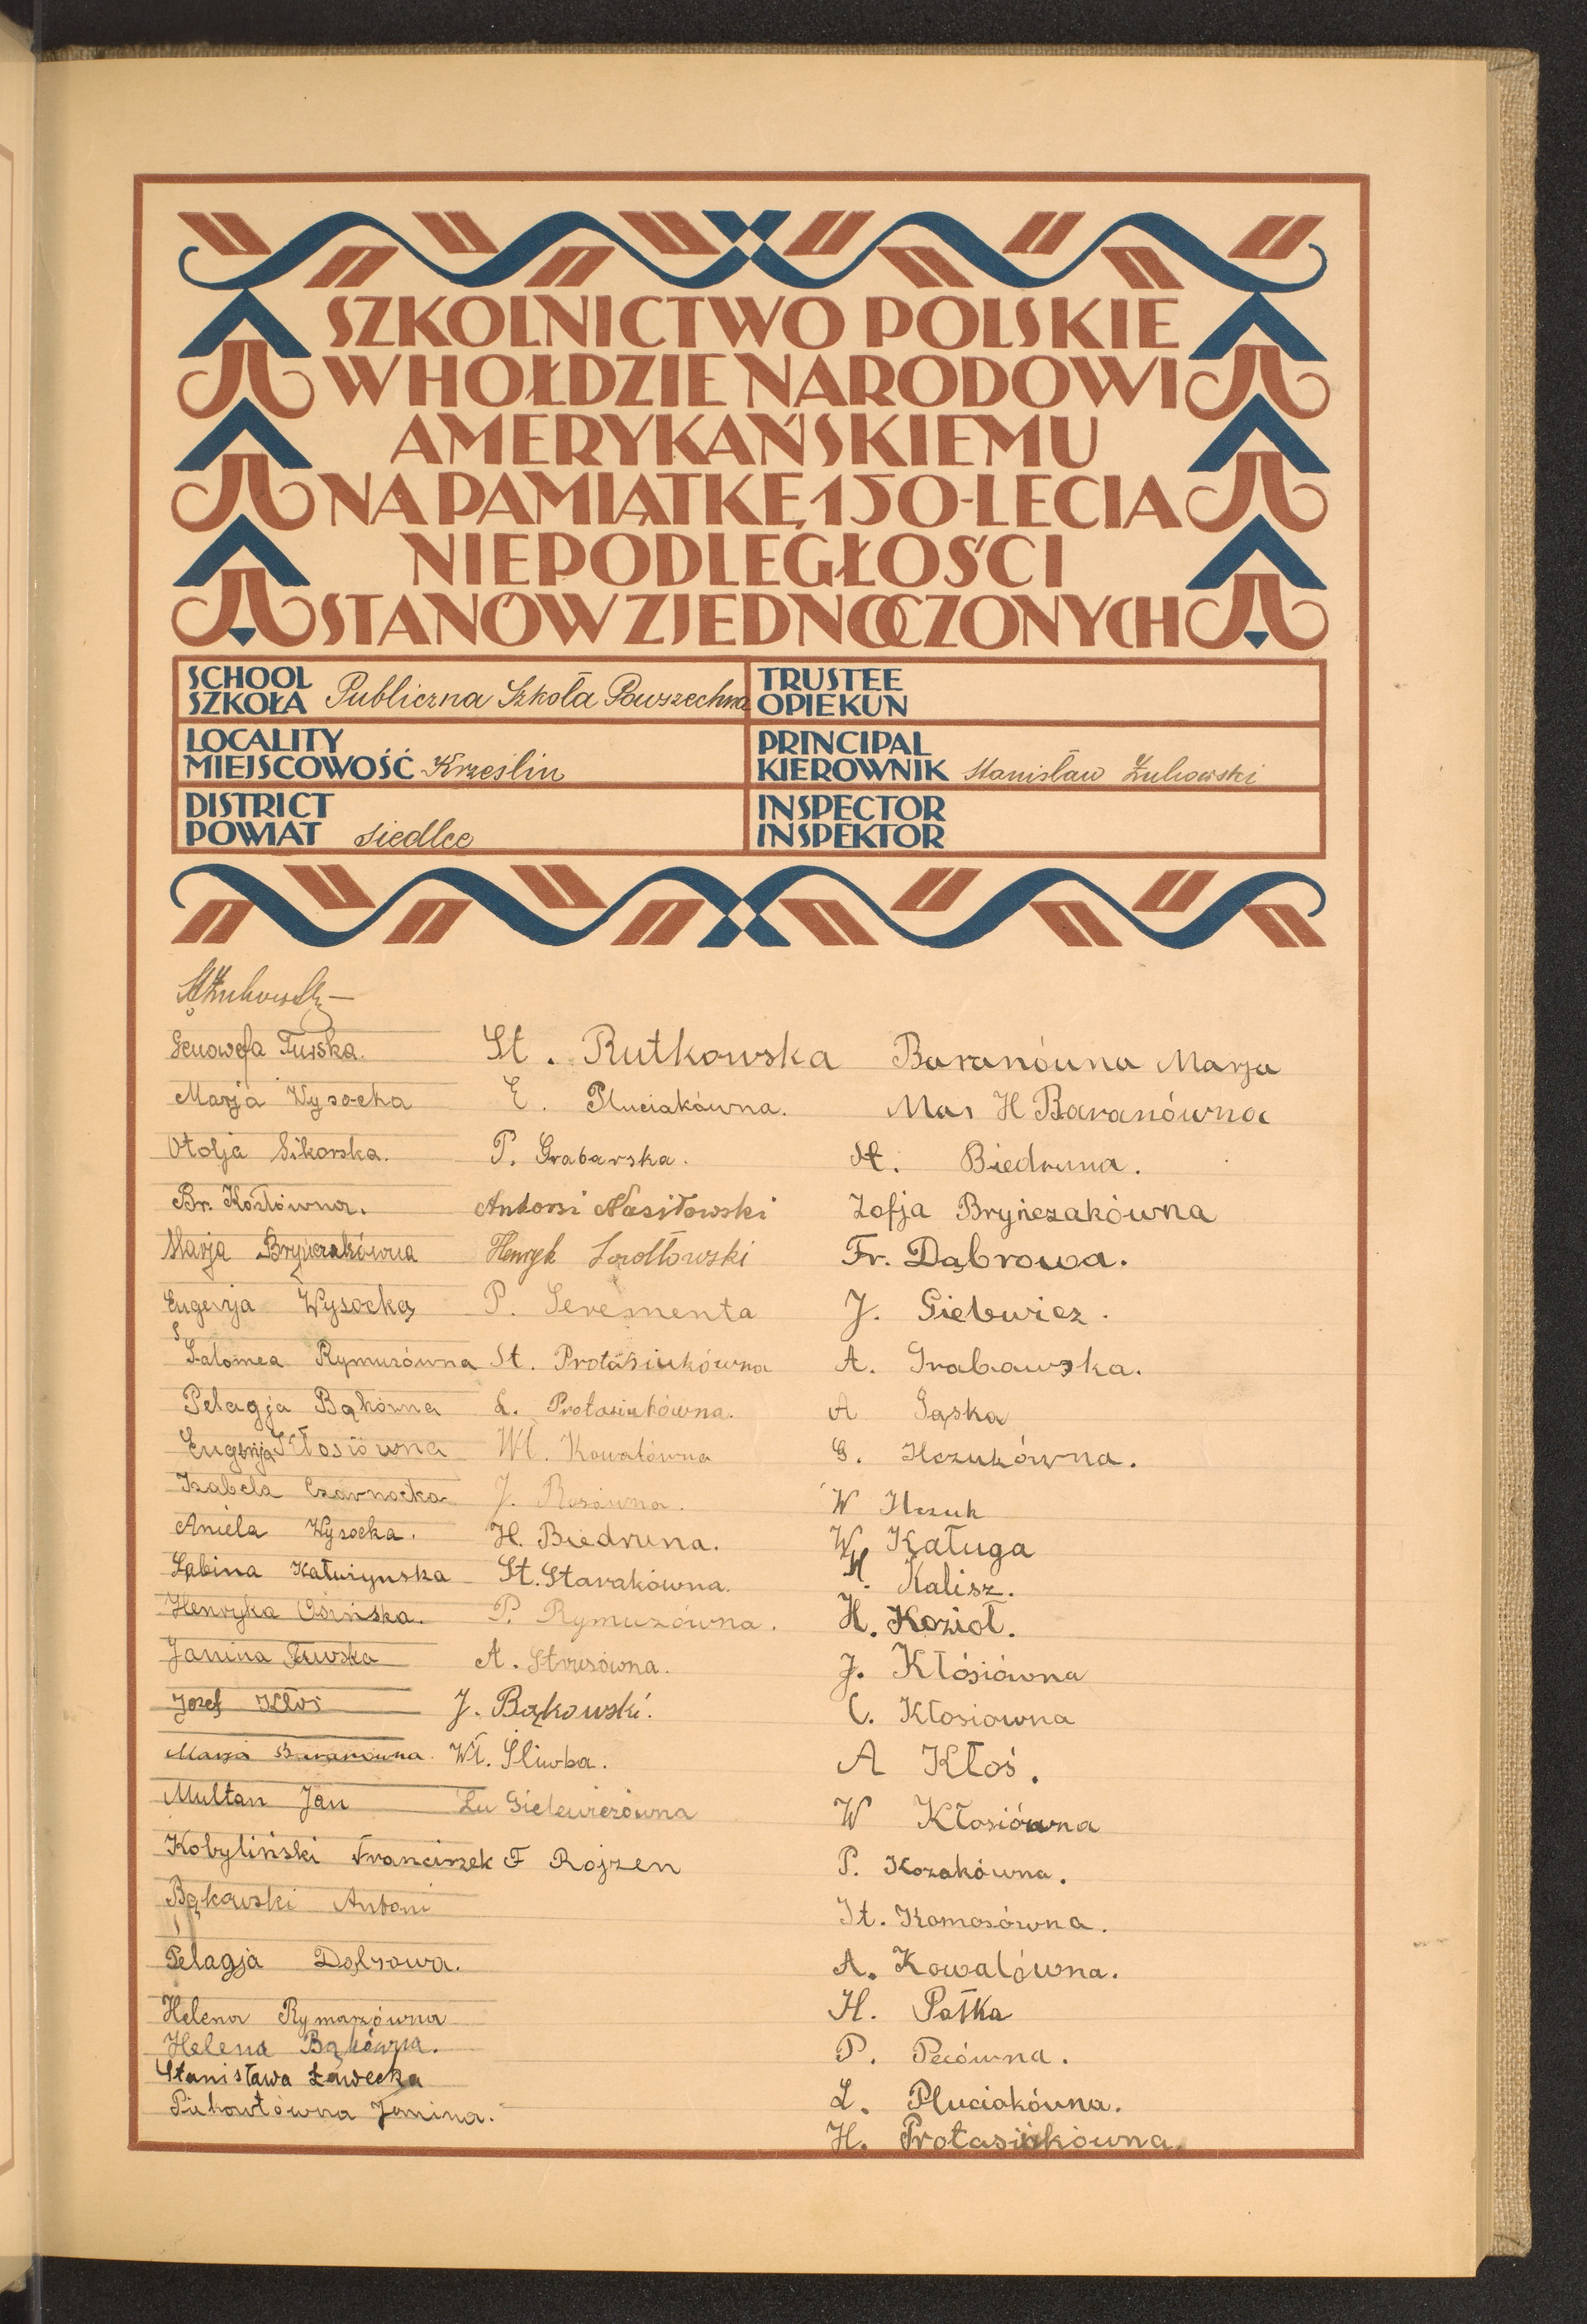 SZKOLNICTWO POLSKIE
W HOŁDZIE NARODOWI
AMERYKAŃSKIEMU
NA PAMIĄTKĘ 150-LECIA
NIEPODLEGŁOŚCI
STANÓW ZJEDNOCZONYCH
SCHOOL
SZKOŁA Publiczna Szkoła Powszechna
TRUSTEE
OPIEKUN
LOCALITY
MIEJSCOWOŚĆ Krześlin
PRINCIPAL
KIEROWNIK Stanisław Żukowski
DISTRICT
POWIAT Siedlce
INSPECTOR
INSPEKTOR
StŻukowski
Genowefa Turska.
Marja Wysocka
Otolja Sikorska.
Br. Kozłówna.
Marja Brynczakówna
Eugenja Wysocka
Salomea Rymuzówna
Pelagja Bąkówna
Eugenja Kłosiówna
Izabela Czarnocka
Aniela Wysocka.
Sabina Katuszynska
Henryka Osińska.
Janina Turska
Józef Kłos
Marja Baranówna.
Multan Jan
Kobyliński Franciszek
Bąkowski Antoni
Pelagja Dąbrowa.
Helena Rymarzówna
Helena Bąkówna.
Stanisława Ławecka
Piekowtówna Janina.
St. Rutkowska
E. Pluciakówna.
P. Grabarska.
Antoni Nasiłowski
Henryk
P. Serementa
St. Protasiukówna
L. Protasiukówna.
Wł. Kowalówna
J. Rosówna.
H. Biedruna.
St. Starakówna.
P. Rymuzówna.
A. Strusówna.
J. Bąkowski.
Wł. Śliwka.
Lu Gielewiczówna
F Rojzen
Baranówna Marja
Mar H Baranówna
St. Biedruna.
Zofja Bryńczakówna
Fr. Dąbrowa.
J. Gielewicz.
A. Grabowska.
A Gąska
G. Ilczukówna.
W Ilczuk
W. Kaługa
H. Kalisz.
H. Kozioł.
J. Kłósiówna
C. Kłosiowna
A Kłoś.
W Kłosiówna
P. Kozakówna.
St. Komosówna.
A. Kowalówna.
H. Pałka
P. Pecówna.
L. Pluciakówna.
H. Protasiukówna.